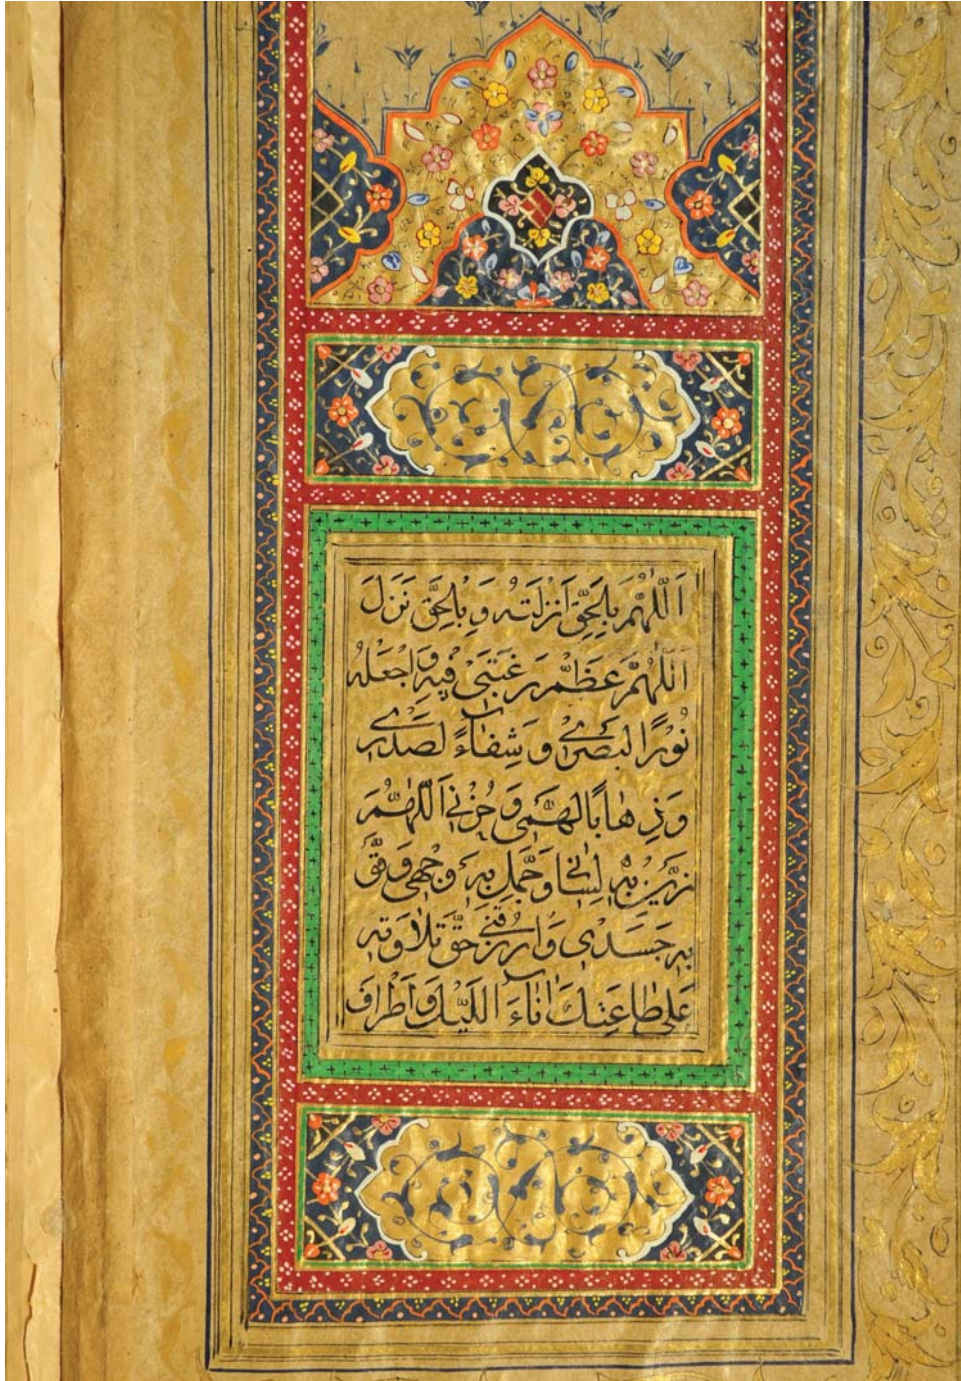 اَللّٰهُمَّ بِالْحَقِّ اَنْزَلْتَهُ وَبِالْحَقِّ نَزَلَ
اَللّٰهُمَّ عَظِّمْ رَغْبَتِيْ فِيْهِ وَاجْعَلْهُ
نُوْرًا لِبَصَرِيْ وَشِفَآءً لِصَدْرِيْ
وَذِهَابًا لِهَمِّيْ وَحُزْنِيْ اَللّٰهُمَّ
زَيِّنْ بِهٖ لِسَانِيْ وَجَمِّلْ بِهٖ وَجْهِيْ وَقَوِّ
بِهٖ جَسَدِيْ وَارْزُقْنِيْ حَقَّ تِلَاوَتِهٖ
عَلٰى طَاعَتِكَ اٰنَآءَ اللَّيْلِ وَاَطْرَافَ